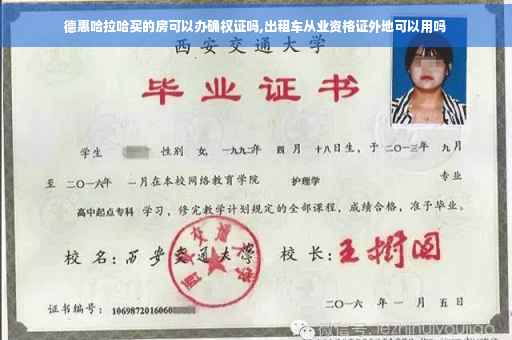 德惠哈拉哈买的房可以办确权证吗,出租车从业资格证外地可以用吗
西安交通大学
毕业证书
学生 性别 女, 一九九二年 四月 十八日生, 于 二〇一三年 九月
至 二〇一六年 一月在本校网络教育学院 护理学 专业
高中起点专科 学习, 修完教学计划规定的全部课程, 成绩合格, 准予毕业。
校 名: 西安交通大学 校 长: 王树国
证书编号: 1069872016060
二〇一六 年 一 月 五 日
微信号: jezhihuiyoujiao